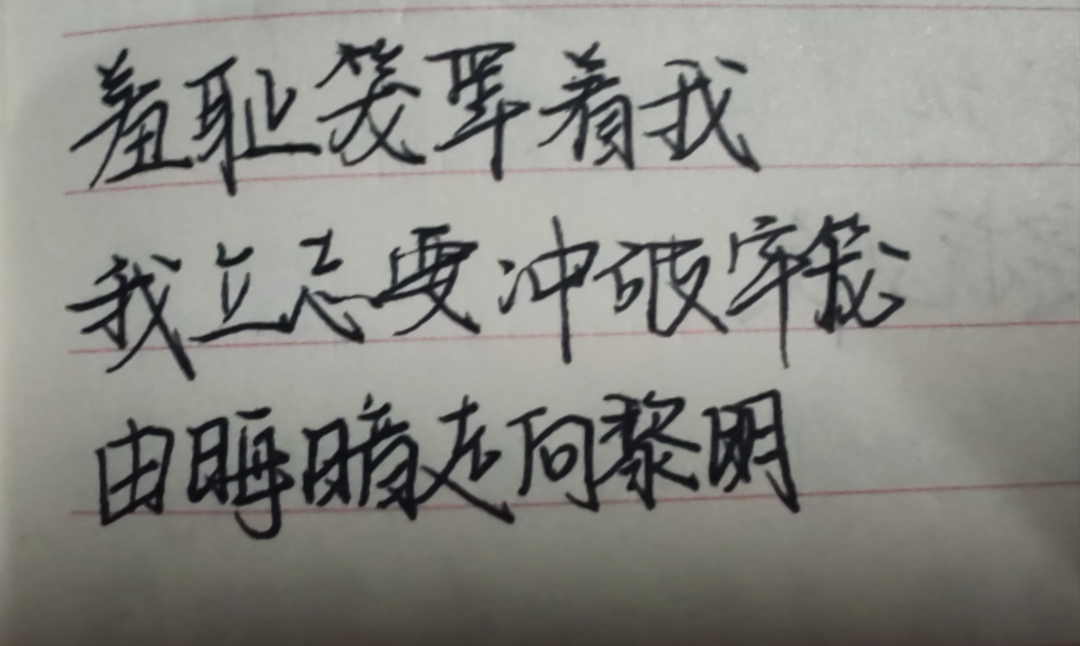 羞耻笼罩着我
我立志要冲破牢笼
由晦暗走向黎明